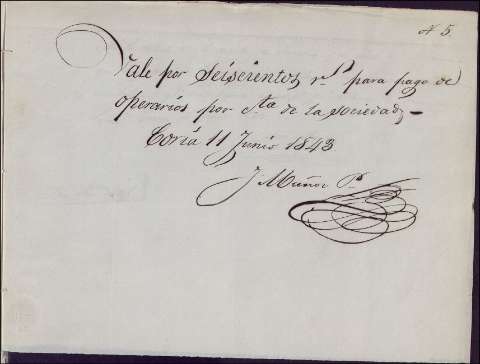 N 5.
Vale por Seiscientos r.s para pago de
operarios por c.ta de la sociedad,
Coria 11 Junio 1843
J Muñoz P.